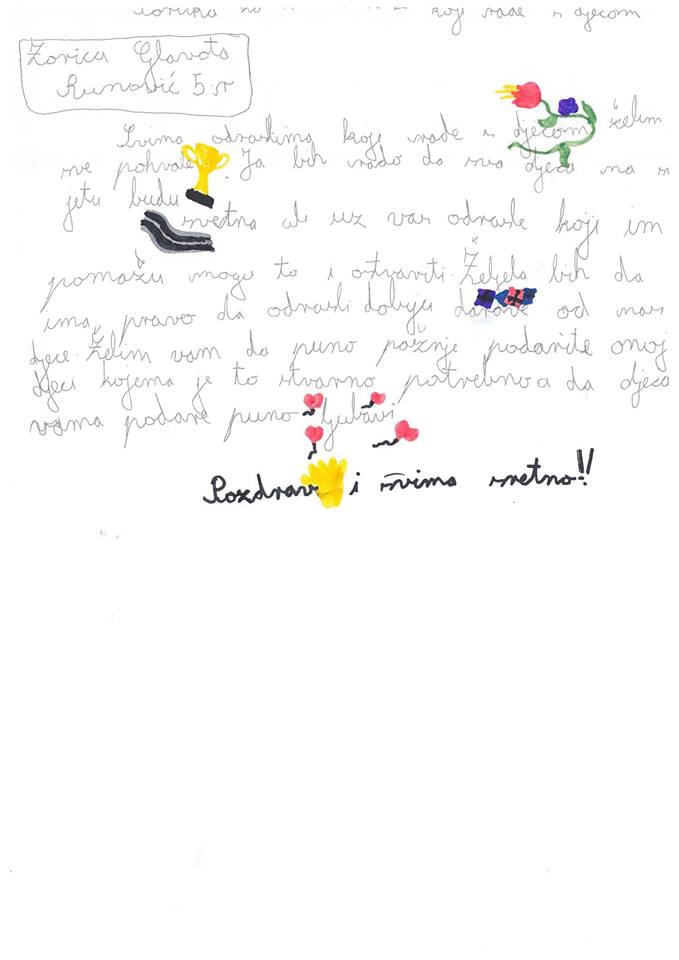 koji rade s djecom
Zorica Glavota
Runović 5.r
Svima odraslima koji rade s djecom želim
sve pohvale. Ja bih rado da sva djeca na s
jetu budu
sretna ali uz vas odrasle koji im
pomažu mogu to i ostvariti. Željela bih da
ima pravo da odrasli dobiju darove od nas
djece. Želim vam da puno pažnje podarite onoj
djeci kojema je to stvarno potrebno a da djeca
vama podare puno ljubavi
Pozdrav i svima sretno!!